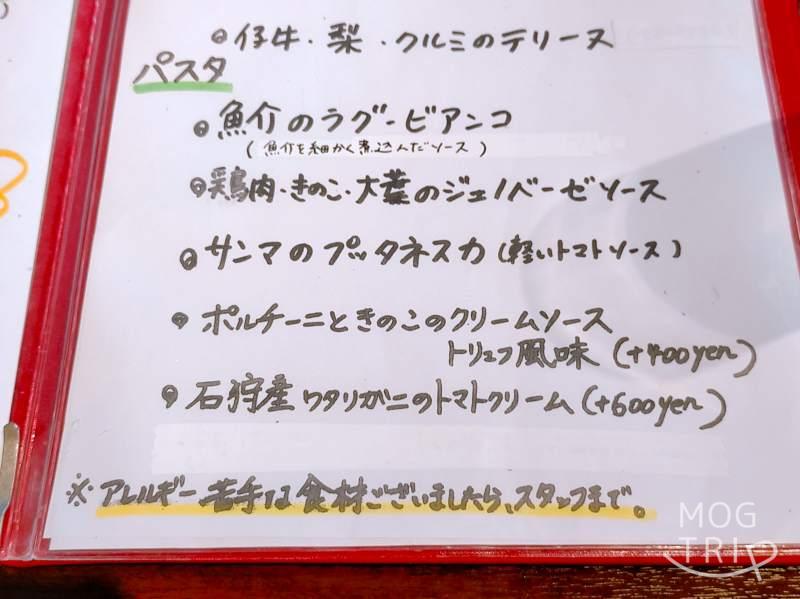 仔牛・梨・クルミのテリーヌ
パスタ
魚介のラグービアンコ
(魚介を細かく煮込んだソース)
鶏肉・きのこ・大葉のジェノベーゼソース
サンマのプッタネスカ(軽いトマトソース)
ポルチーニときのこのクリームソース
トリュフ風味(+400yen)
石狩産ワタリガニのトマトクリーム(+600yen)
※アレルギー苦手な食材ございましたら、スタッフまで。
MOG
TRIP